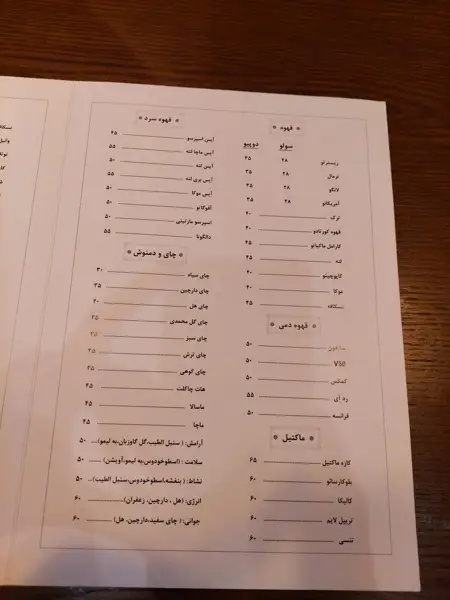 قهوه
سولو دوپیو
ریسترتو ۲۸ ۳۵
نرمال ۲۸ ۳۵
لانگو ۲۸ ۳۵
آمریکانو ۲۸ ۳۵
ترک ۴۰
قهوه کورتادو ۴۰
کارامل ماکیاتو ۴۵
لته ۴۵
کاپوچینو ۴۰
موکا ۴۰
نسکافه ۴۵
قهوه دمی
سایفون ۵۰
V60 ۵۰
کمکس ۵۰
رد آی ۵۵
فرانسه ۵۰
ماکتیل
کازه ماکتیل ۶۵
بلوکارسائو ۶۰
کالیکا ۶۰
تریپل لایم ۶۰
تنسی ۶۰
قهوه سرد
آیس اسپرسو ۴۵
آیس ماچا لته ۵۵
آیس لته ۵۰
آیس پری لته ۵۵
آیس موکا ۵۰
آفوگاتو ۵۰
اسپرسو مارتینی ۵۰
دالگونا ۵۵
چای و دمنوش
چای سیاه ۳۰
چای دارچین ۳۵
چای هل ۴۰
چای گل محمدی ۳۵
چای سبز ۳۵
چای ترش ۴۵
چای کوهی ۴۵
هات چاکلت ۴۵
ماسالا ۴۵
ماچا ۴۵
آرامش: ( سنبل الطیب،گل گاوزبان،به لیمو)... ۵۰
سلامت : (اسطوخودوس،به لیمو،آویشن) ۵۰
نشاط: ( بنفشه،اسطوخودوس،سنبل الطیب)... ۵۰
انرژی: (هل ، دارچین، زعفران) ۶۰
جوانی: ( چای سفید،دارچین، هل) ۶۰
نسکافه